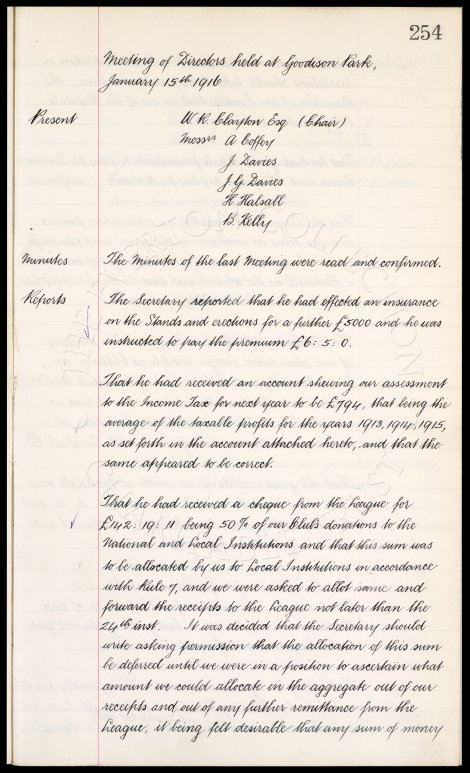 254
Meeting of Directors held at Goodison Park,
January 15th 1916
Present W. R. Clayton Esq (Chair)
Messrs A Coffey
J. Davies
J G Davies
H. Halsall
B. Kelly
Minutes The Minutes of the last Meeting were read and confirmed.
Reports The Secretary reported that he had effected an insurance
on the Stands and erections for a further £5000 and he was
instructed to pay the premium £6: 5: 0.
That he had received an account shewing our assessment
to the Income Tax for next year to be £794, that being the
average of the taxable profits for the years 1913, 1914, 1915,
as set forth in the account attached hereto, and that the
same appeared to be correct.
That he had received a cheque from the League for
£142: 19: 11 being 50% of our Club's donations to the
National and Local Institutions and that this sum was
to be allocated by us to Local Institutions in accordance
with Rule 7, and we were asked to allot same and
forward the receipts to the League not later than the
24th inst. It was decided that the Secretary should
write asking permission that the allocation of this sum
be deferred until we were in a position to ascertain what
amount we could allocate in the aggregate out of our
receipts and out of any further remittance from the
League, it being felt desirable that any sum of money